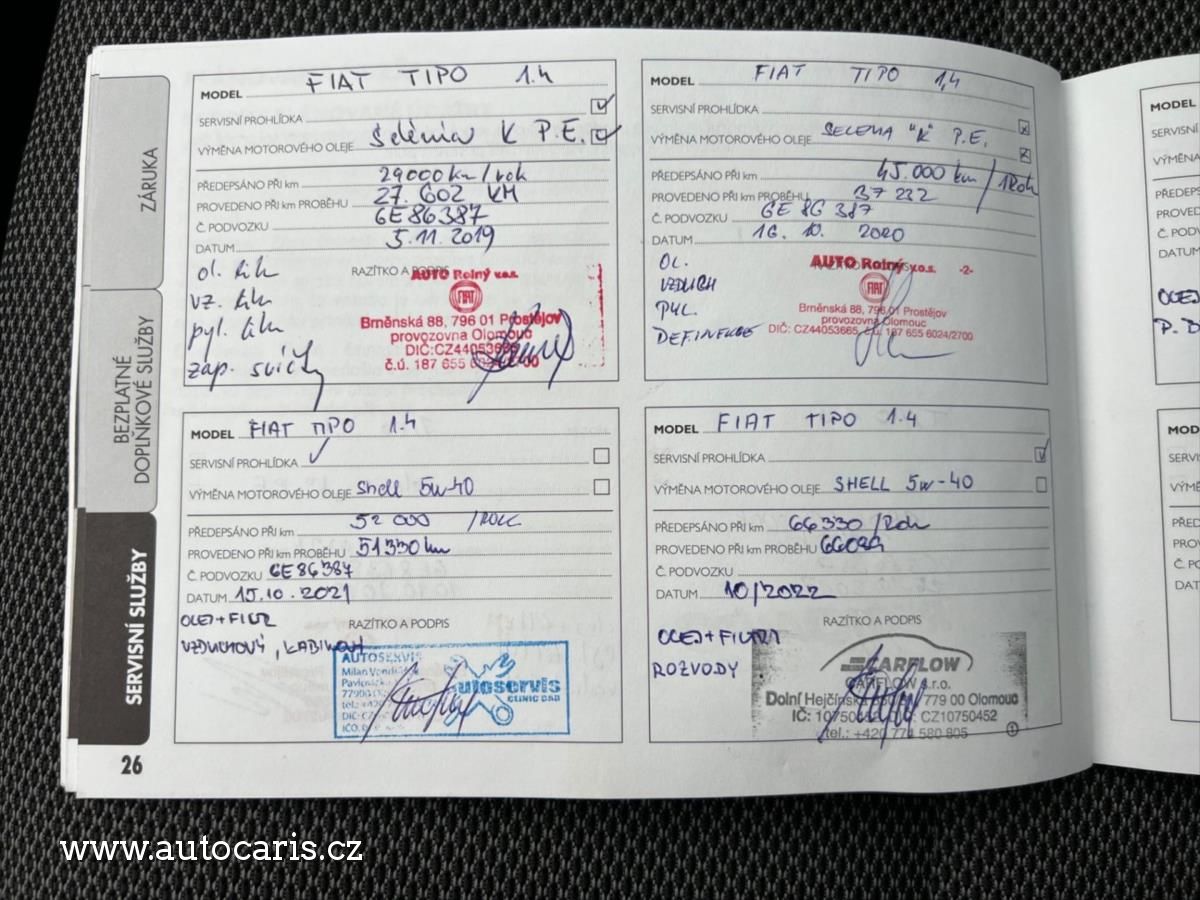 ZÁRUKA
BEZPLATNÉ
DOPLŇKOVÉ SLUŽBY
SERVISNÍ SLUŽBY
26
MODEL FIAT TIPO 1.4
SERVISNÍ PROHLÍDKA
VÝMĚNA MOTOROVÉHO OLEJE Selénia K P.E.
PŘEDEPSÁNO PŘI km 29000km/rok
PROVEDENO PŘI km PROBĚHU 27.602 KM
Č. PODVOZKU 6E86387
DATUM 5.11.2019
RAZÍTKO A PODPIS
ol. filt
vz. filt
pyl. filt
zap. svíčky
AUTO Rolný v.o.s.
FIAT
Brněnská 88, 796 01 Prostějov
provozovna Olomouc
DIČ:CZ44053665
č.ú. 187 655
MODEL FIAT TIPO 1,4
SERVISNÍ PROHLÍDKA
VÝMĚNA MOTOROVÉHO OLEJE SELENIA "K" P.E.
PŘEDEPSÁNO PŘI km 45.000 km/1Rok
PROVEDENO PŘI km PROBĚHU 37 232
Č. PODVOZKU 6E 86 387
DATUM 16. 10. 2020
OL.
VZDUCH
PYL.
AUTO Rolný v.o.s. -2-
FIAT
Brněnská 88, 796 01 Prostějov
provozovna Olomouc
DIČ: CZ44053665, č.ú. 187 655 6024/2700
MODEL FIAT TIPO 1.4
SERVISNÍ PROHLÍDKA
VÝMĚNA MOTOROVÉHO OLEJE Shell 5w40
PŘEDEPSÁNO PŘI km 52 000 /ROK
PROVEDENO PŘI km PROBĚHU 51330 km
Č. PODVOZKU 6E86387
DATUM 15.10.2021
RAZÍTKO A PODPIS
OLEJ+FILTR
VZDUCHOVÝ, KABINOVÝ
AUTOSERVIS
Milan
autoservis
CLINIC CAR
MODEL FIAT TIPO 1.4
SERVISNÍ PROHLÍDKA
VÝMĚNA MOTOROVÉHO OLEJE SHELL 5w-40
PŘEDEPSÁNO PŘI km 66330/Rok
PROVEDENO PŘI km PROBĚHU 66089
Č. PODVOZKU
DATUM 10/2022
RAZÍTKO A PODPIS
OLEJ+FILTR
ROZVODY
CARFLOW
CARFLOW s.r.o.
Dolní Hejčínská 779 00 Olomouc
IČ: 10750452 CZ10750452
tel.: +420 774 580 805
MODEL
SERVISNÍ
VÝMĚNA
PŘEDEPS
PROVEDE
Č. PODV
DATUM
OLEJ
MOD
SERVIS
VÝMĚ
PŘED
PROV
Č. PC
DAT
www.autocaris.cz